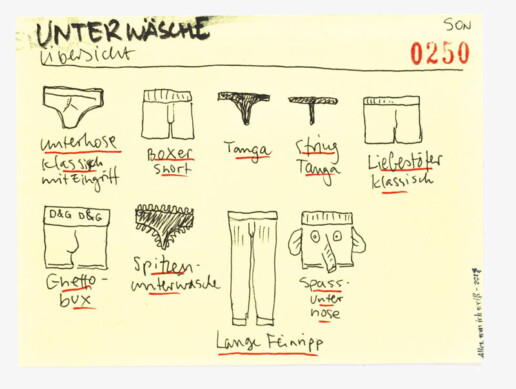 UNTERWÄSCHE
Übersicht
SON
0250
Unterhose
klassisch
mit Eingriff
BOXER
SHORT
Tanga
String
Tanga
Liebestöter
klassisch
D&G D&G
Ghetto-
bux
Spitzen-
unterwäsche
Lange Feinripp
Spass-
unter
hose